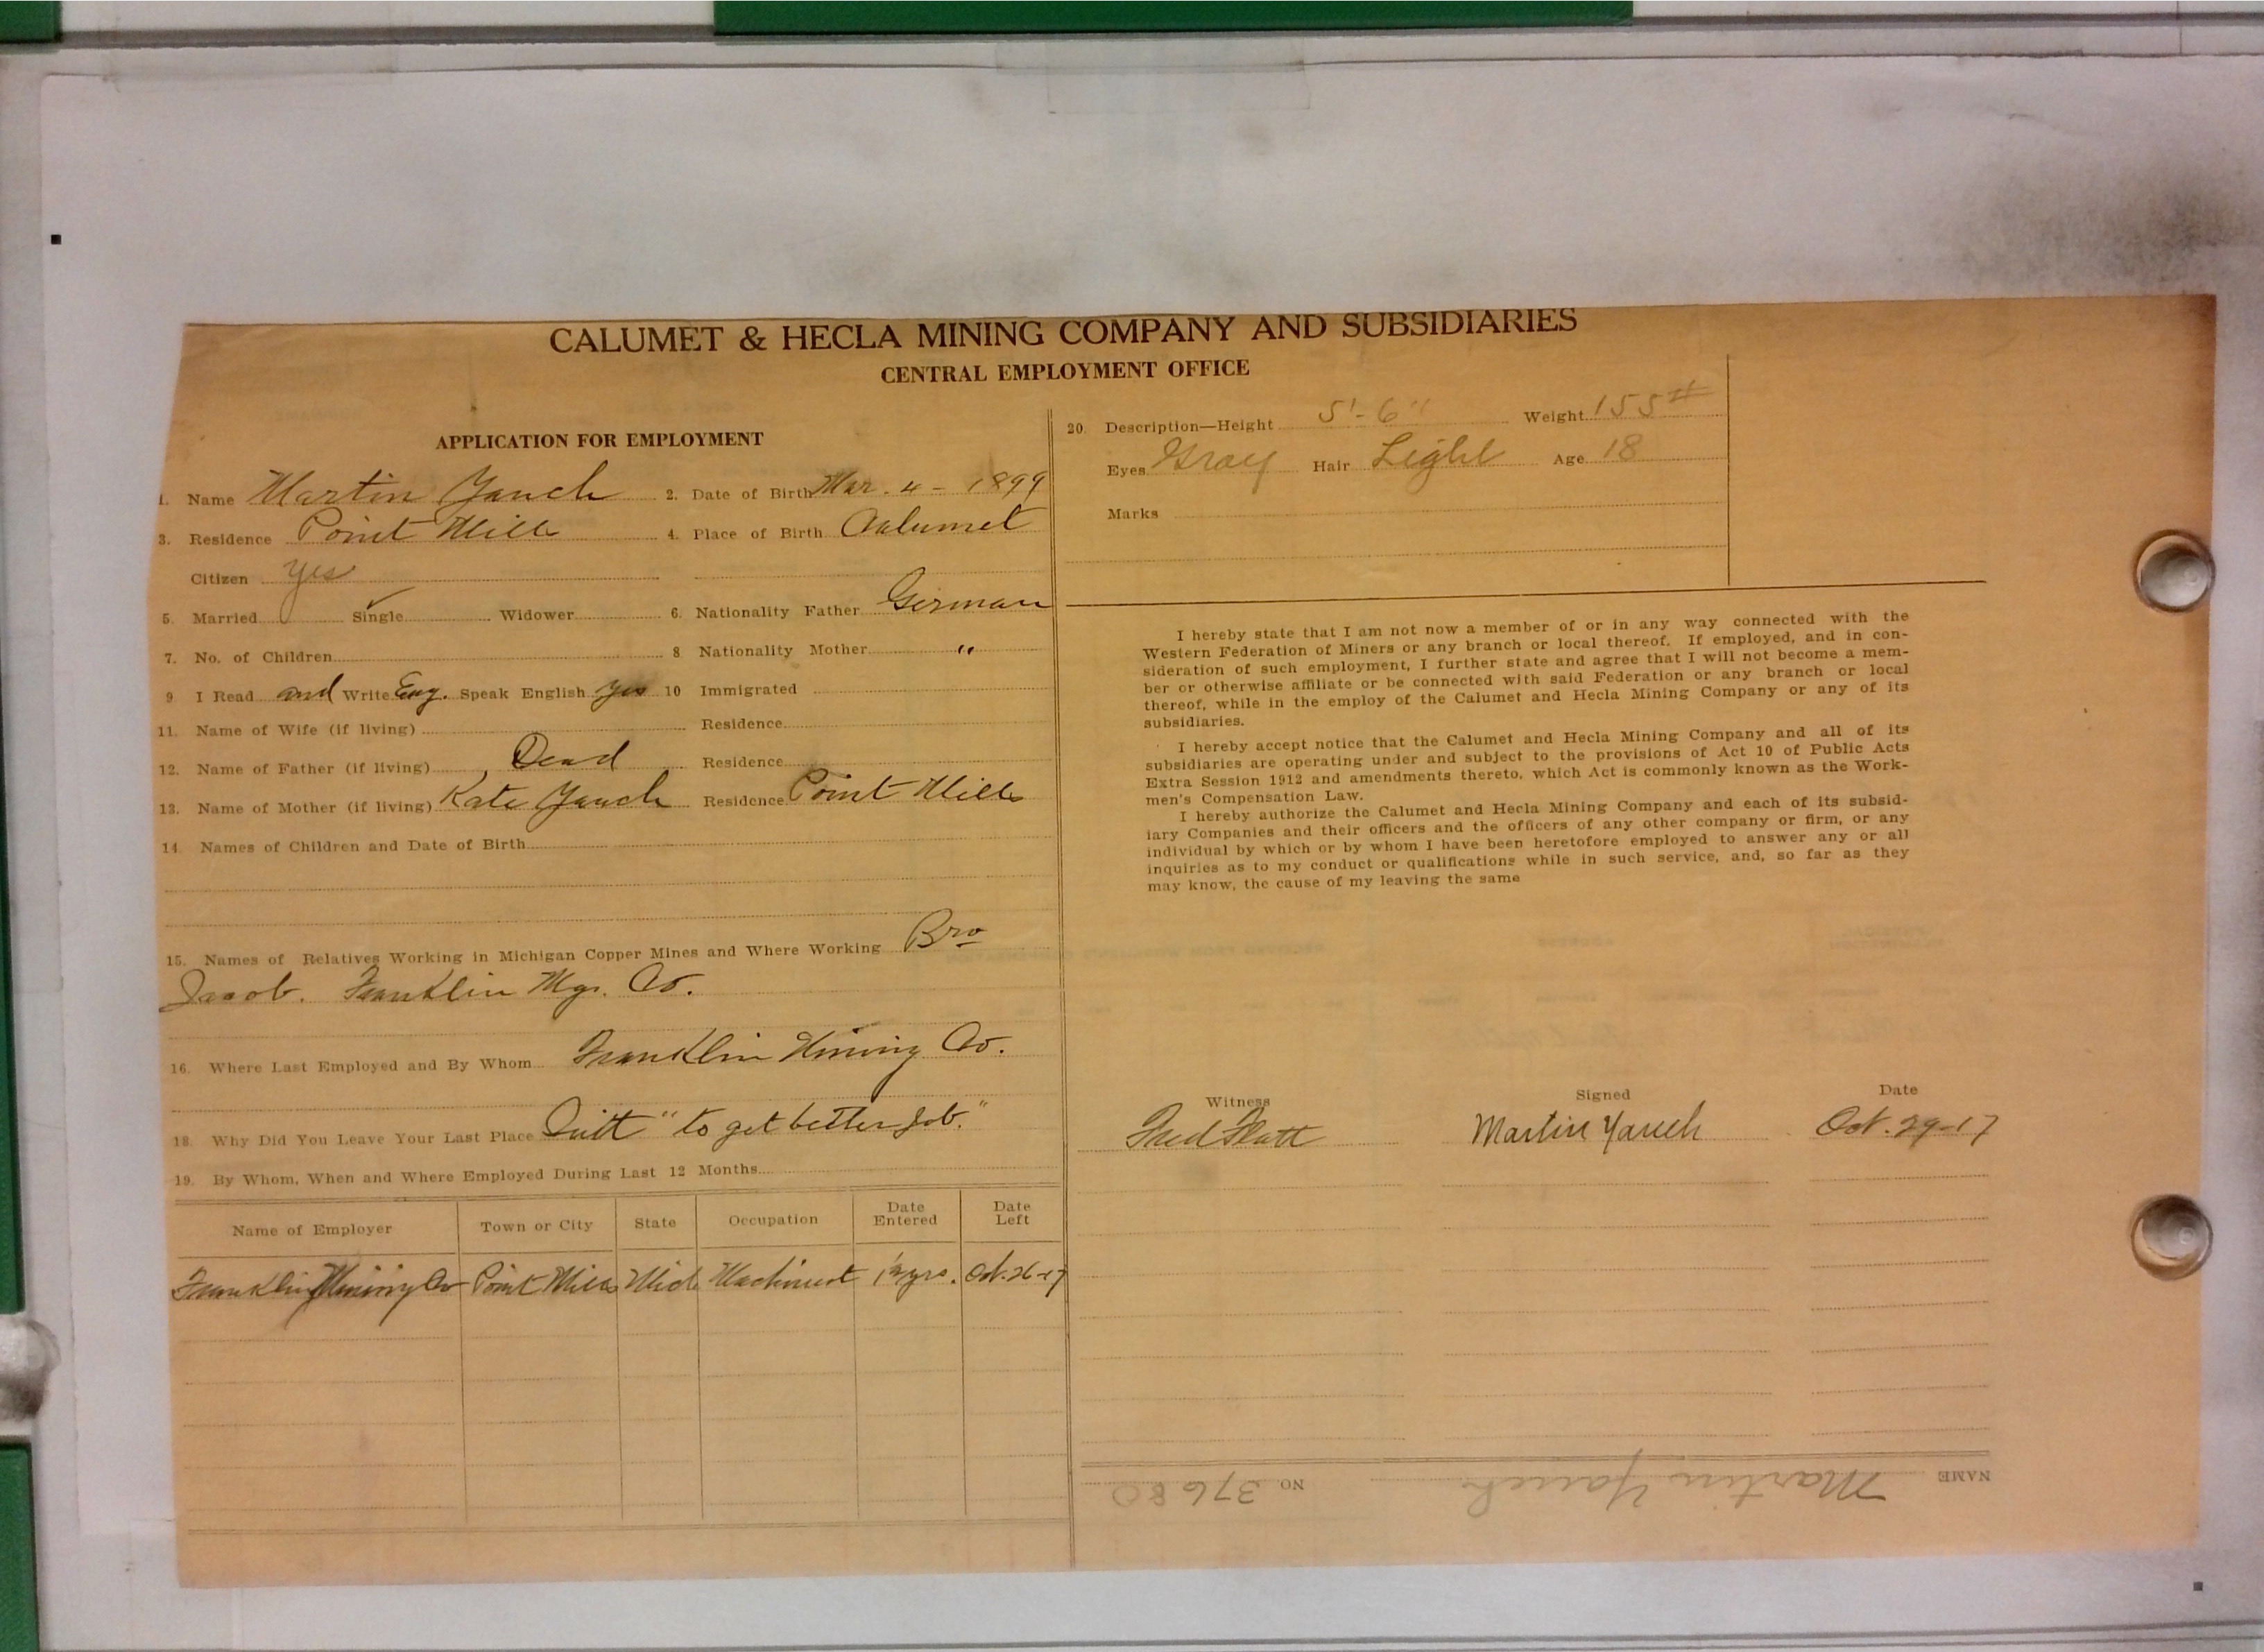 CALUMET & HECLA MINING COMPANY AND SUBSIDIARIES
CENTRAL EMPLOYMENT OFFICE
APPLICATION FOR EMPLOYMENT
1. Name Martin Yauch 2. Date of Birth Mar. 4 - 1899
3. Residence Point Mills 4. Place of Birth Calumet
Citizen yes
5. Married Single ✓ Widower 6. Nationality Father German
7. No. of Children 8 Nationality Mother "
9 I Read and Write Eng. Speak English yes 10 Immigrated
11. Name of Wife (if living) Residence
12. Name of Father (if living) Dead Residence
13. Name of Mother (if living) Kate Yauch Residence Point Mills
14. Names of Children and Date of Birth
15. Names of Relatives Working in Michigan Copper Mines and Where Working Bro
Jacob. Franklin Mgr. Co.
16. Where Last Employed and By Whom Franklin Mining Co.
18. Why Did You Leave Your Last Place Quit "to get better job."
19. By Whom, When and Where Employed During Last 12 Months
Name of Employer Town or City State Occupation Date Entered Date Left
Franklin Mining Co Point Mills Mich Machinist 1½ yrs. Oct. 26-17
20. Description—Height 5'-6" Weight 155#
Eyes Gray Hair Light Age 18
Marks
I hereby state that I am not now a member of or in any way connected with the
Western Federation of Miners or any branch or local thereof. If employed, and in con-
sideration of such employment, I further state and agree that I will not become a mem-
ber or otherwise affiliate or be connected with said Federation or any branch or local
thereof, while in the employ of the Calumet and Hecla Mining Company or any of its
subsidiaries.
I hereby accept notice that the Calumet and Hecla Mining Company and all of its
subsidiaries are operating under and subject to the provisions of Act 10 of Public Acts
Extra Session 1912 and amendments thereto, which Act is commonly known as the Work-
men's Compensation Law.
I hereby authorize the Calumet and Hecla Mining Company and each of its subsid-
iary Companies and their officers and the officers of any other company or firm, or any
individual by which or by whom I have been heretofore employed to answer any or all
inquiries as to my conduct or qualifications while in such service, and, so far as they
may know, the cause of my leaving the same
Witness Signed Date
Fred Platt Martin Yauch Oct. 29-17
NAME Martin Yauch NO 37680